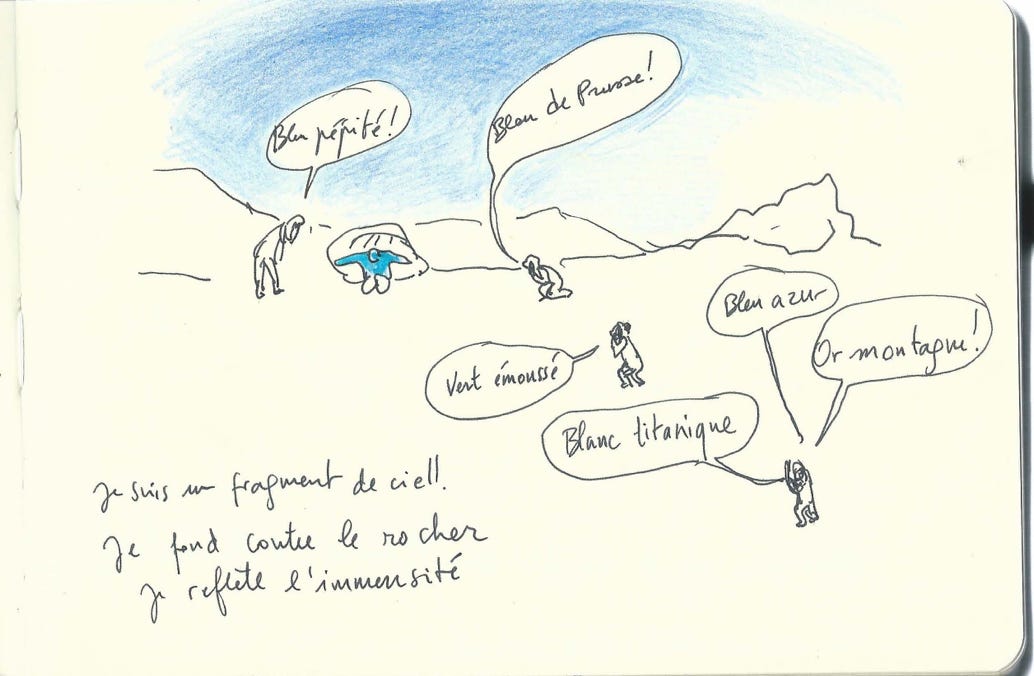 Bleu pépité!
Bleu de Prusse!
Bleu azur
Or montagne!
Vert émoussé
Blanc titanique
Je suis un fragment de ciel!
Je fond contre le rocher
Je reflète l'immensité